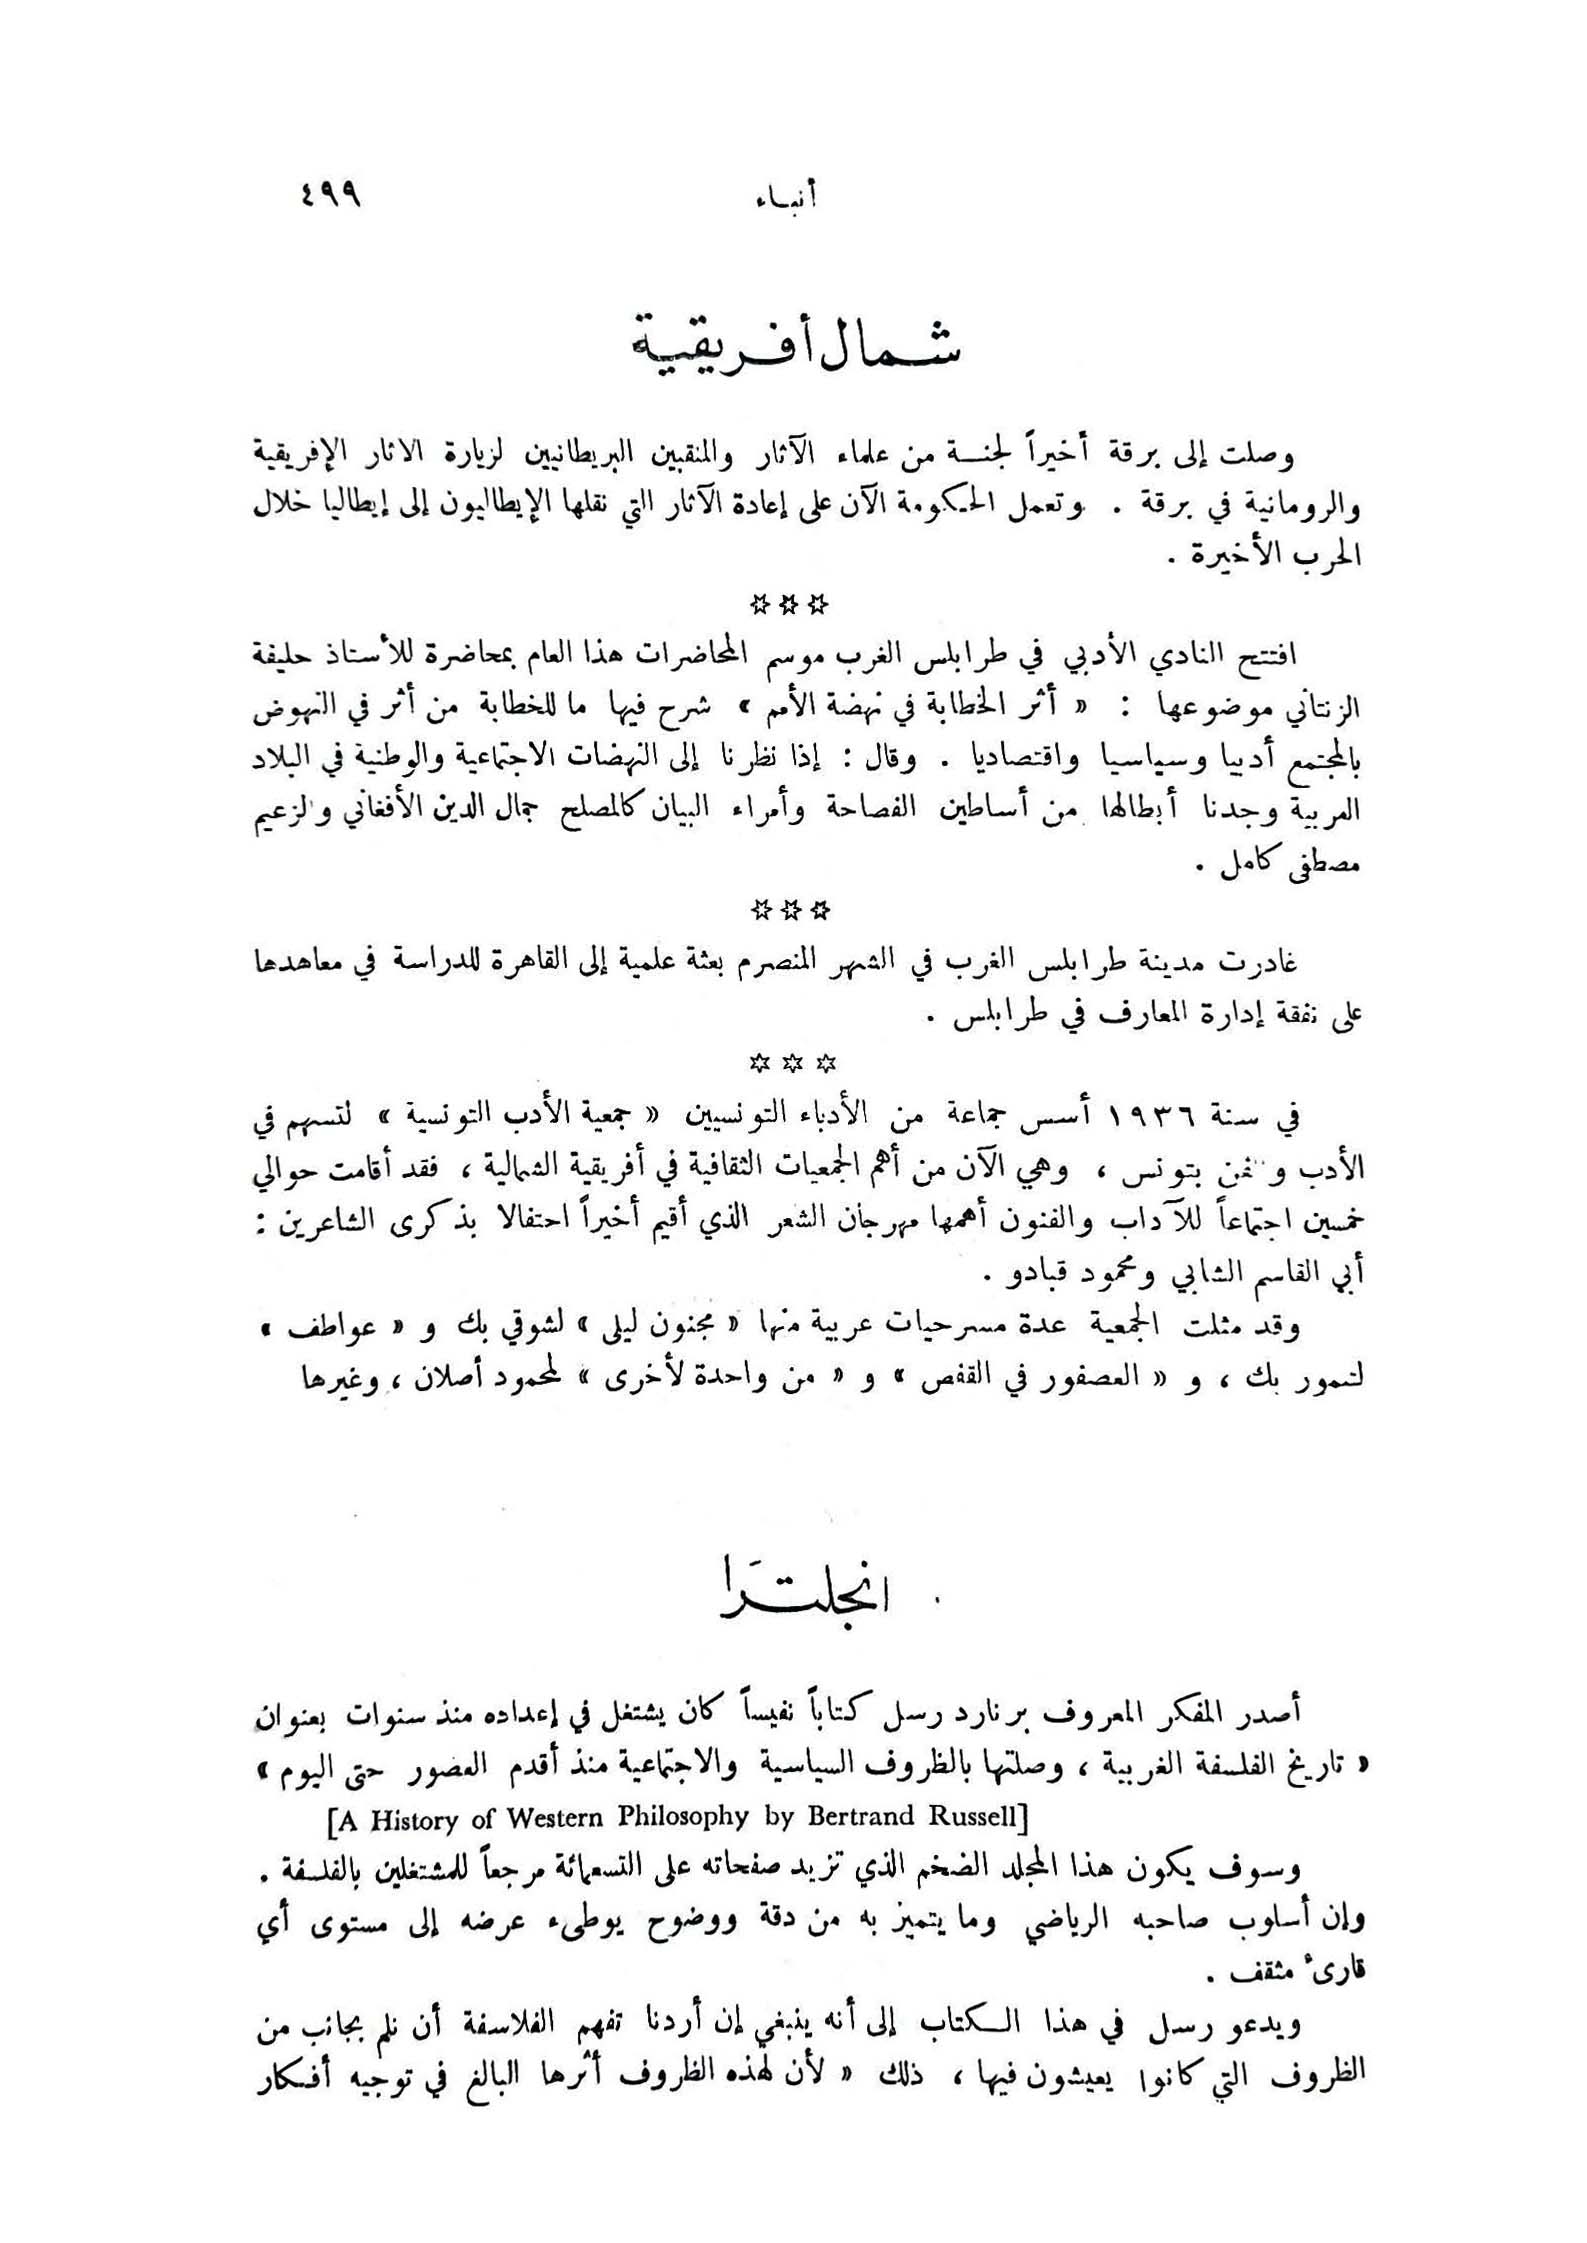 أنباء ٤٩٩
شمال أفريقية
وصلت إلى برقة أخيراً لجنة من علماء الآثار والمنقبين البريطانيين لزيارة الاثار الإفريقية
والرومانية في برقة . وتعمل الحكومة الآن على إعادة الآثار التي نقلها الإيطاليون إلى إيطاليا خلال
الحرب الأخيرة .
***
افتتح النادي الأدبي في طرابلس الغرب موسم المحاضرات هذا العام بمحاضرة للأستاذ حليفة
الزنتاني موضوعها : « أثر الخطابة في نهضة الأمم » شرح فيها ما للخطابة من أثر في النهوض
بالمجتمع أدبيا وسياسيا واقتصاديا . وقال : إذا نظرنا إلى النهضات الاجتماعية والوطنية في البلاد
العربية وجدنا أبطالها من أساطين الفصاحة وأمراء البيان كالمصلح جمال الدين الأفغاني والزعيم
مصطفى كامل .
***
غادرت مدينة طرابلس الغرب في الشهر المنصرم بعثة علمية إلى القاهرة للدراسة في معاهدها
على نفقة إدارة المعارف في طرابلس .
***
في سنة ١٩٣٦ أسس جماعة من الأدباء التونسيين « جمعية الأدب التونسية » لتسهم في
الأدب بتونس ، وهي الآن من أهم الجمعيات الثقافية في أفريقية الشمالية ، فقد أقامت حوالي
خمسين اجتماعاً للآداب والفنون أهمها مهرجان الشعر الذي أقيم أخيراً احتفالا بذكرى الشاعرين :
أبي القاسم الشابي ومحمود قبادو .
وقد مثلت الجمعية عدة مسرحيات عربية منها « مجنون ليلى » لشوقي بك و « عواطف »
لتيمور بك ، و « العصفور في القفص » و « من واحدة لأخرى » لمحمود أصلان ، وغيرها
انجلترَا
أصدر المفكر المعروف برنارد رسل كتاباً نفيساً كان يشتغل في إعداده منذ سنوات بعنوان
« تاريخ الفلسفة الغربية ، وصلتها بالظروف السياسية والاجتماعية منذ أقدم العصور حتى اليوم »
[A History of Western Philosophy by Bertrand Russell]
وسوف يكون هذا المجلد الضخم الذي تزيد صفحاته على التسعمائة مرجعاً للمشتغلين بالفلسفة .
وإن أسلوب صاحبه الرياضي وما يتميز به من دقة ووضوح يوطىء عرضه إلى مستوى أي
قارئ مثقف .
ويدعو رسل في هذا الكتاب إلى أنه ينبغي إن أردنا تفهم الفلاسفة أن نلم بجانب من
الظروف التي كانوا يعيشون فيها ، ذلك « لأن لهذه الظروف أثرها البالغ في توجيه أفكار